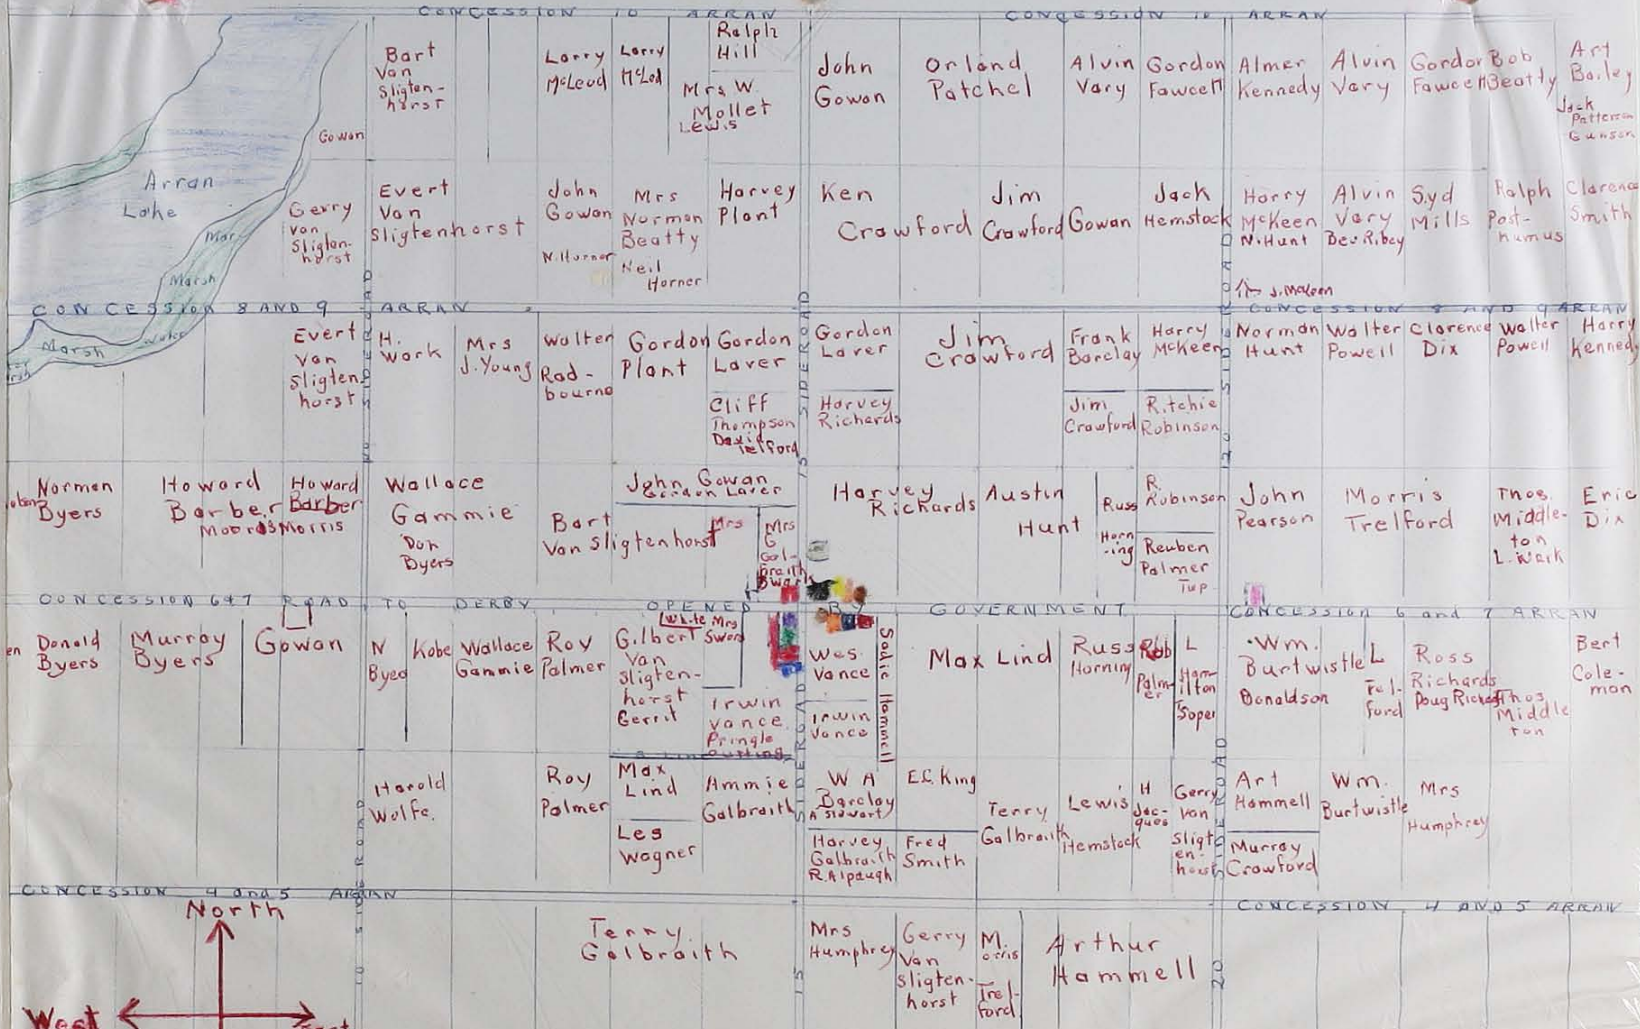 CONCESSION 10 ARRAN
CONCESSION 10 ARRAN
Bart
Van
Sligten-
horst
Larry
McLeod
Larry
McLeod
Ralph
Hill
Mrs W.
Mollet
Lewis
John
Gowan
Orland
Patchel
Alvin
Vary
Gordon
Fawcett
Almer
Kennedy
Alvin
Vary
Gordon
Fawcett
Bob
Beatty
Art
Bailey
Jack
Patterson
Gunson
Gowan
Arran
Lake
Marsh
Gerry
van
Sligten-
horst
Evert
Van
Sligtenhorst
John
Gowan
N. Horner
Mrs
Norman
Beatty
Neil
Horner
Harvey
Plant
Ken
Crawford
Jim
Crawford
Gowan
Jack
Hemstock
Harry
McKeen
N. Hunt
J. McKeen
Alvin
Vary
Bev Ribey
Syd
Mills
Ralph
Post-
humus
Clarence
Smith
CONCESSION 8 AND 9 ARRAN
CONCESSION 8 AND 9 ARRAN
Marsh
Evert
Van
Sligten
horst
H.
Wark
Mrs
J. Young
Walter
Rad-
bourne
Gordon
Plant
Gordon
Laver
Cliff
Thompson
David
Telford
Gordon
Laver
Harvey
Richards
Jim
Crawford
Frank
Barclay
Jim
Crawford
Harry
McKeen
Ritchie
Robinson
Norman
Hunt
Walter
Powell
Clarence
Dix
Walter
Powell
Harry
Kennedy
Norman
Byers
Howard
Barber
Howard
Barber
Morris
Wallace
Gammie
Don
Byers
Bart
Van Sligtenhorst
John Gowan
Gordon Laver
Mrs
Mrs
G
Gal-
braith
Harvey
Richards
Austin
Hunt
Russ
Horn
-ing
R.
Robinson
Reuben
Palmer
Tup
John
Pearson
Morris
Trelford
Thos.
Middle-
ton
L. Wark
Eric
Dix
CONCESSION 6 & 7 ROAD TO DERBY OPENED BY GOVERNMENT
CONCESSION 6 and 7 ARRAN
Donald
Byers
Murray
Byers
Gowan
N
Byed
Kobe
Wallace
Gammie
Roy
Palmer
White
Gilbert
Van
Sligten-
horst
Gerrit
Mrs
Sword
Irwin
Vance
Pringle
Wes.
Vance
Irwin
Vance
Sadie Hammell
Max Lind
Russ
Horning
Rob
Palm-
er
L
Ham-
ilton
Soper
Wm.
Burtwistle
Donaldson
L
Tel-
ford
Ross
Richards
Doug Richards
Thos
Middle
ton
Bert
Cole-
man
Harold
Wolfe.
Roy
Palmer
Max
Lind
Les
Wagner
Ammie
Galbraith
W A
Barclay
A Stewart
Harvey
Galbraith
R. Alpaugh
E.C. King
Fred
Smith
Terry
Galbraith
Lewis
Hemstock
H
Jac-
ques
Gerry
Van
Sligt
en-
horst
Art
Hammell
Murray
Crawford
Wm.
Burtwistle
Mrs
Humphrey
CONCESSION 4 and 5 ARRAN
CONCESSION 4 AND 5 ARRAN
North
West
Terry
Galbraith
Mrs
Humphrey
Gerry
Van
Sligten-
horst
M.
orris
Trel-
ford
Arthur
Hammell
10 SIDEROAD
15 SIDEROAD
20 SIDEROAD